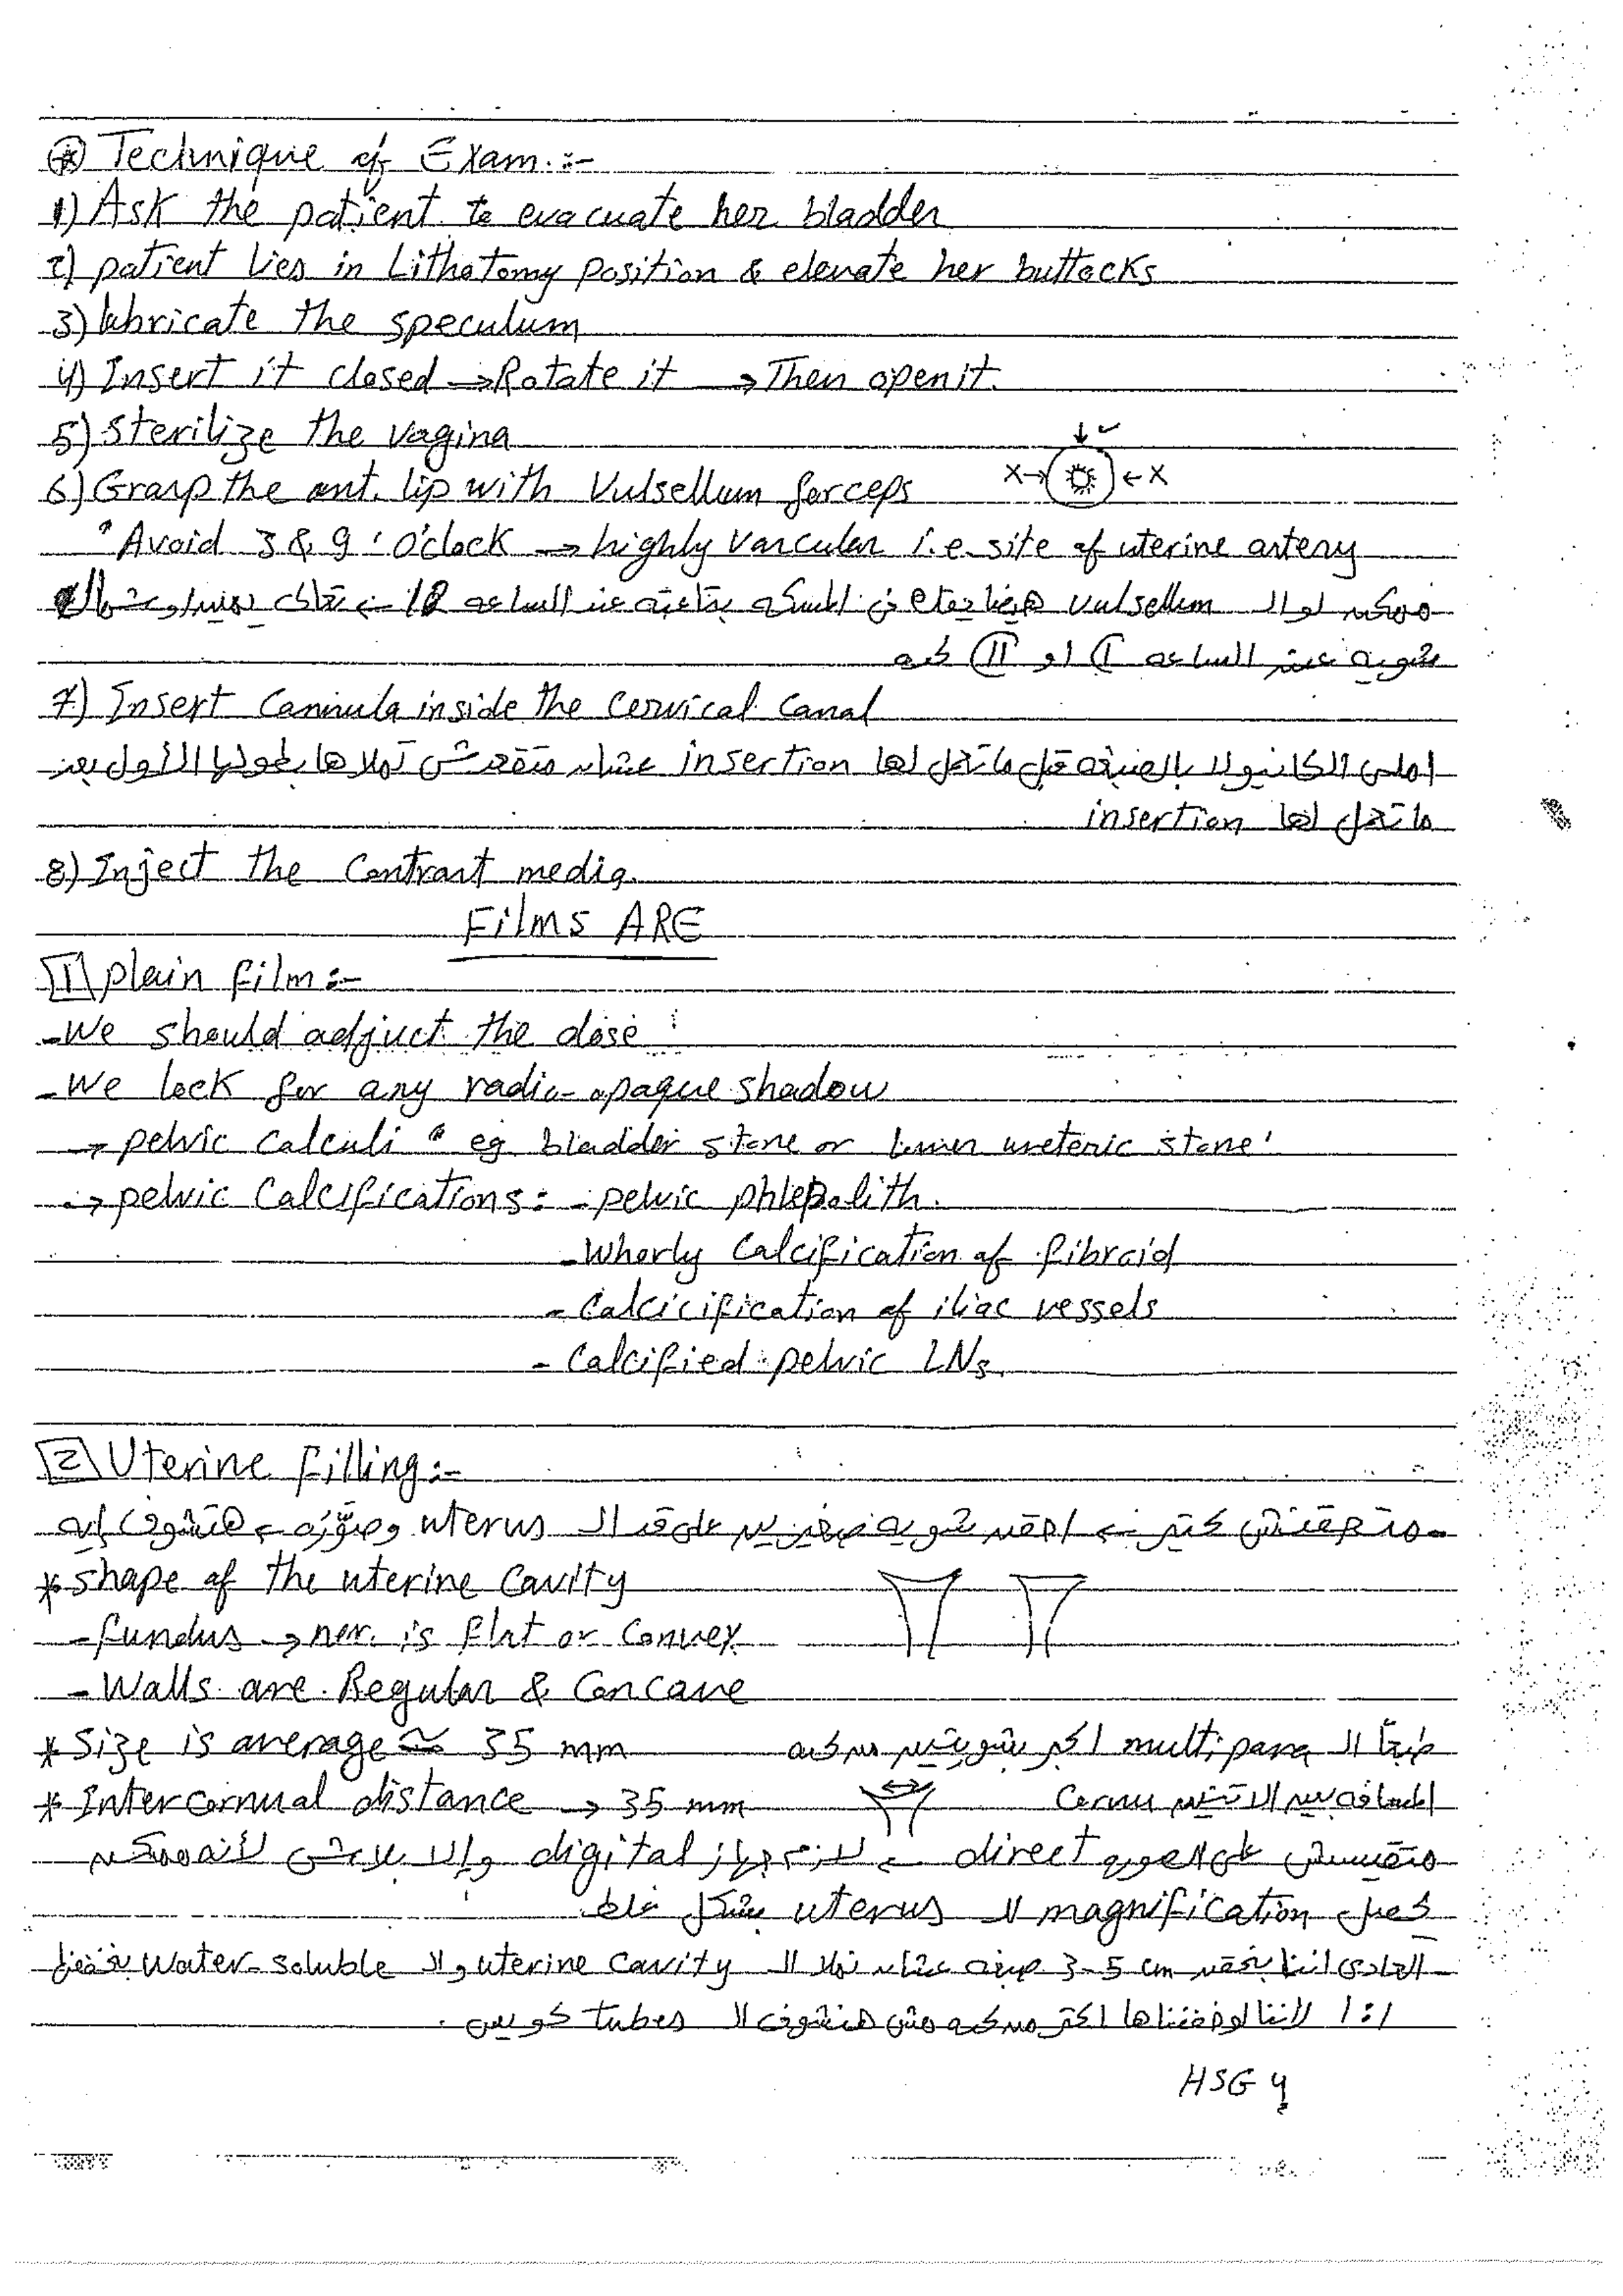 ⊛ Technique of Exam.:-
1) Ask the patient to evacuate her bladder
2) patient lies in Lithotomy position & elevate her buttocks
3) lubricate the speculum
4) Insert it closed → Rotate it → Then open it.
5) Sterilize the vagina
6) Grasp the ant. lip with Vulsellum forceps
↓ ✓
X→ ←X
"Avoid 3 & 9 'O'clock → highly vascular i.e. site of uterine artery
ممكن لو الـ vulsellum عند الساعة 12 ←
شوية عند الساعه 1 او 11 كده
7) Insert Cannula inside the Cervical Canal
املى الكانيولا بالصبغه قبل ما تعمل لها insertion عشان متقعدش تملاها بطولها الأول بعد
ما تعمل لها insertion
8) Inject the Contrast media.
Films ARE
1 plain film:-
- We should adjuct the dose
- We look for any radio-opaque shadow
→ pelvic calculi " eg. bladder stone or lower ureteric stone'
→ pelvic Calcifications: - pelvic phlebolith.
- Whorly Calcification of fibroid
- Calcicification of iliac vessels
- Calcified pelvic LNs.
2 Uterine filling:-
- متحقنش كتير ← احقن شوية صغيرين على قد الـ uterus وصوّره ← هتشوف إيه
* shape of the uterine Cavity
- fundus → nor. is flat or Convex
- Walls are Regular & Concave
* Size is average ≈ 35 mm طبعًا الـ multipara اكبر شويتين من كده
* Intercornual distance → 35 mm المسافه بين الاتنين cornu
متقسش على الصوره direct ← لازم جهاز digital وإلا بلاش لأنه ممكن
يحصل magnification للـ uterus بشكل غلط
- العادى اننا بنحقن 3-5 cm صبغه عشان نملا الـ uterine cavity والـ Water-soluble بنخففها
1:1 لاننا لو خففناها اكتر من كده مش هنشوف الـ tubes كويس .
HSG 4